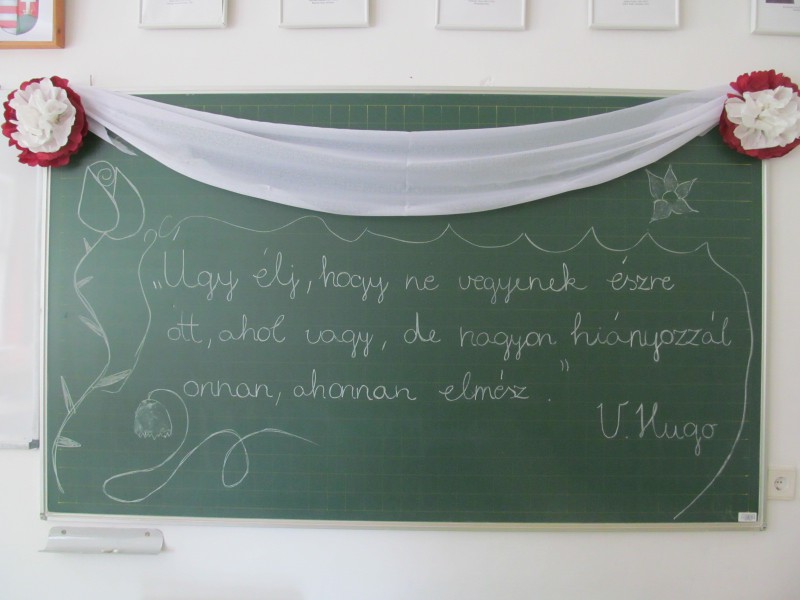 „Úgy élj, hogy ne vegyenek észre
ott, ahol vagy, de nagyon hiányozzál
onnan, ahonnan elmész."
V. Hugo